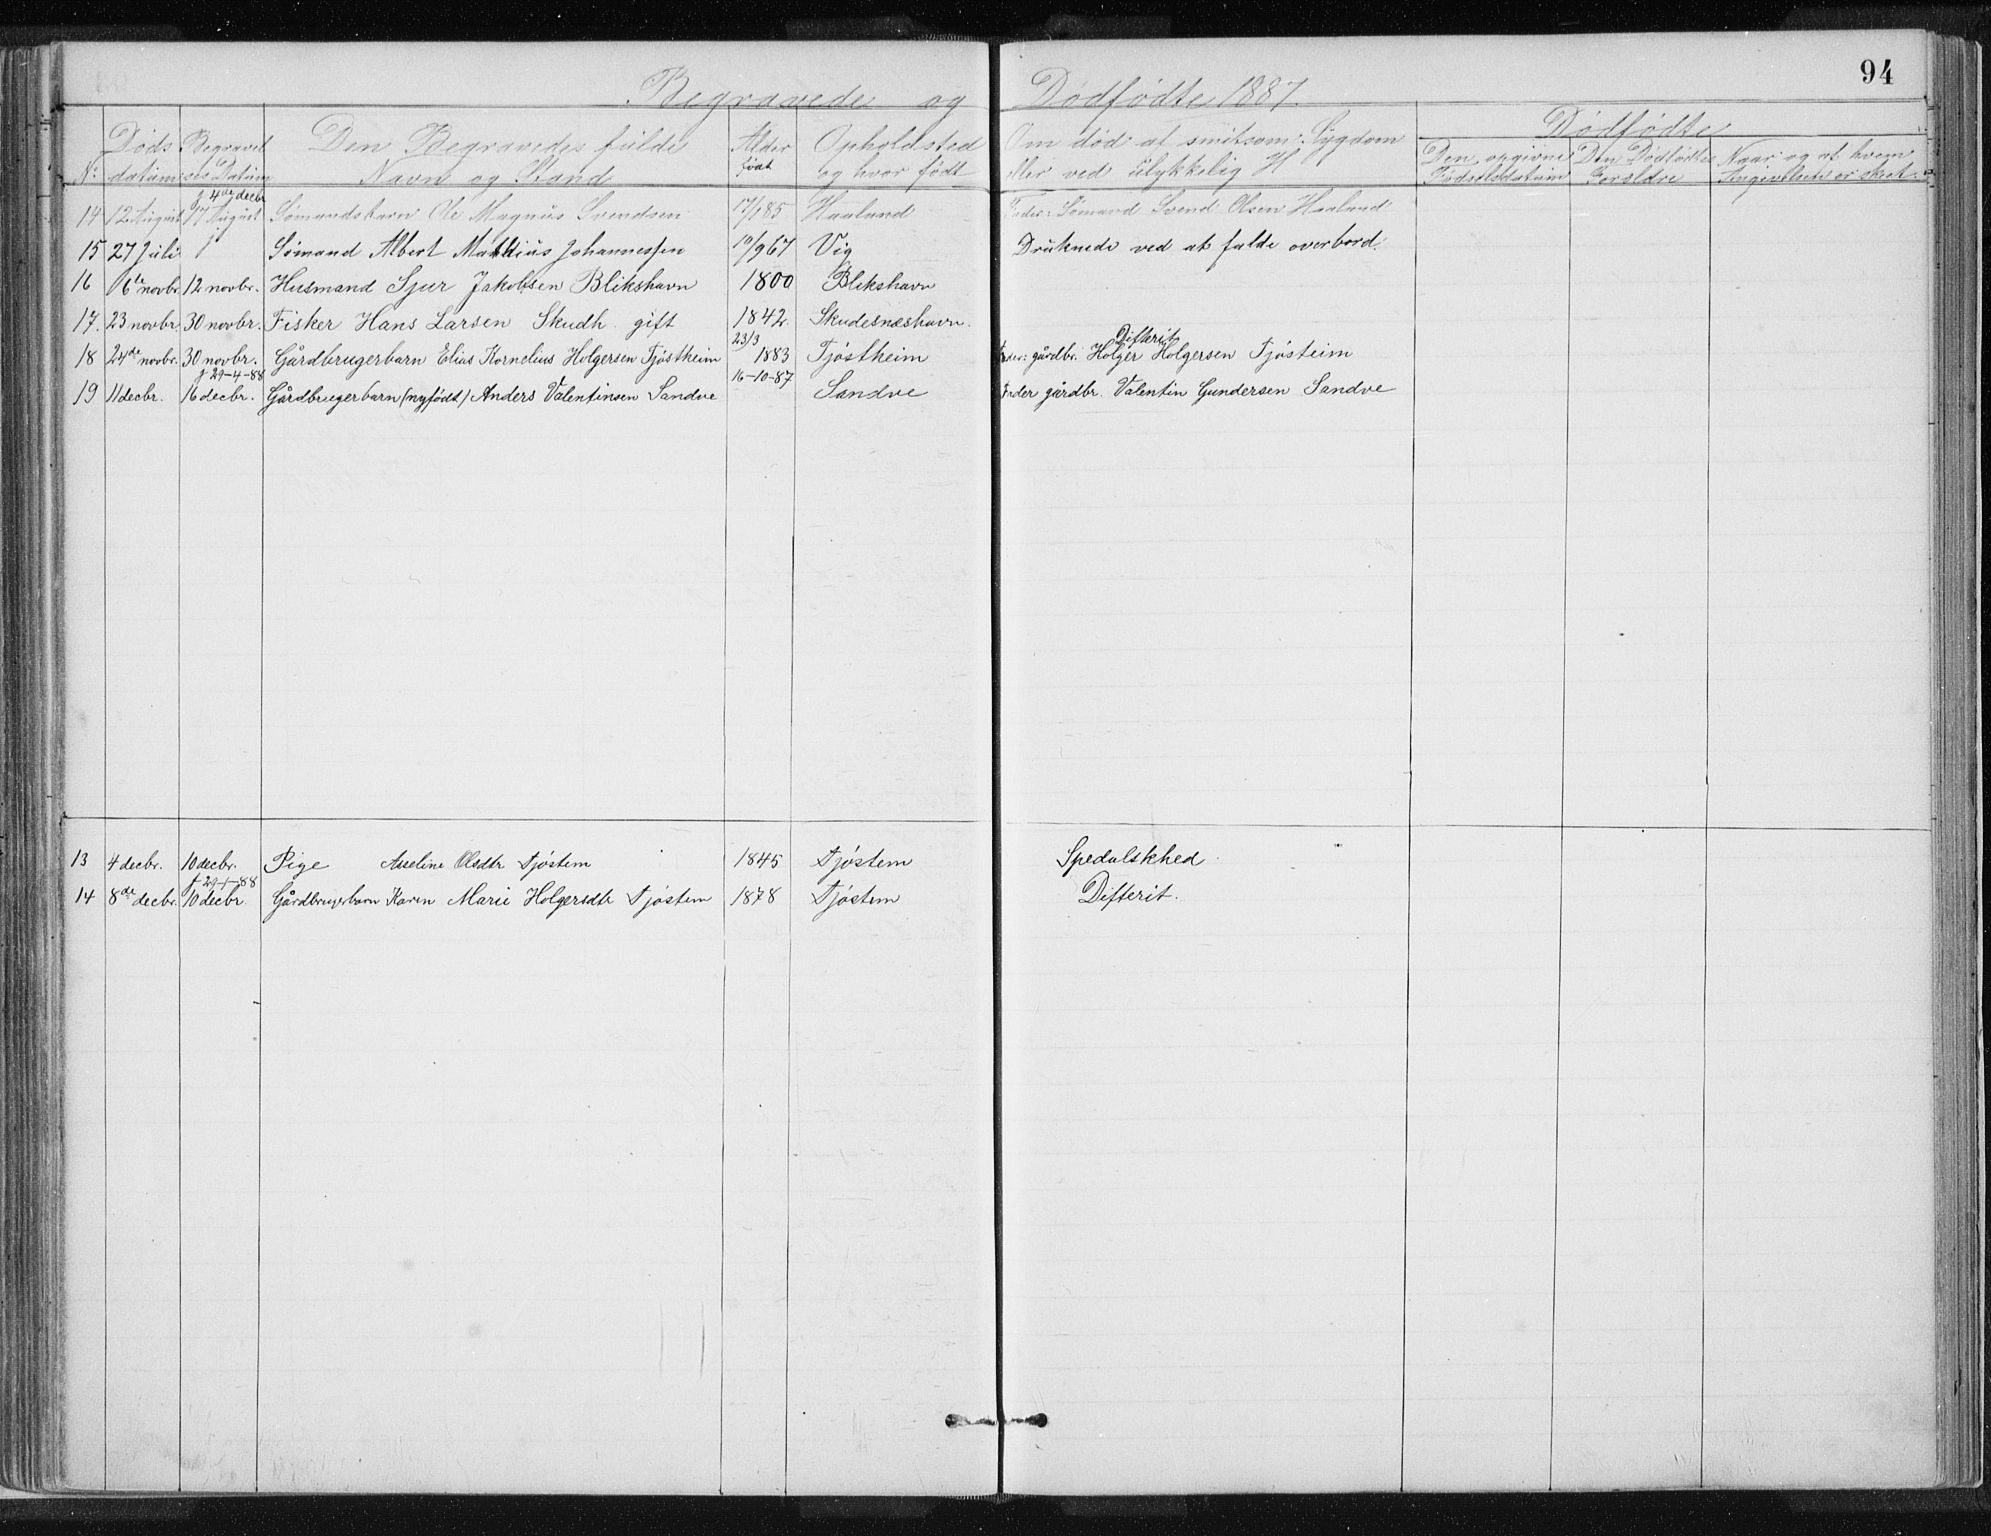 94
Begravede og Dødfødte 1887.
Dødfødte
No Døds datum Begravelses Datum Den Begravedes fulde Navn og Stand Alder Opholdsted og hvor født Om død af smitsom Sygdom eller ved Ulykkelig H Den opgivne Fødselsdatum Den Dødfødtes Forældre Naar og af hvem Angivelsen er skeet.
j 4de decbr
14 12 August 17 August Sømandsbarn Ole Magnus Svendsen 17/185 Haaland Fader: Sømand Svend Olsen Haaland
15 27 Juli Sømand Albert Mathius Johannessen 19/967 Vig Druknede ved at falde overbord.
16 6te novbr. 12 novbr. Husmand Sjur Jakobsen Blikshavn 1800 Blikshavn
17. 23 novbr. 30 novbr. Fisker Hans Larsen Skudh. gift 1842. Skudesnæshavn.
23/3 Difterit
18 24de novbr. 30 novbr. Gårdbrugerbarn Elias Kornelius Holgersen Tjøstheim 1883 Tjøstheim Fader: gårdbr. Holger Holgersen Tjøsteim
j 29-4-88 16-10-87
19 11 decbr. 16 decbr. Gårdbrugerbarn (nyfødt) Anders Valentinsen Sandve Sandve Fader gårdbr. Valentin Gundersen Sandve
13 4 decbr. 10 decbr. Pige Asseline Olsdtr Tjøstem 1845 Tjøstem Spedalskhed
j 29-1-88
14 8de decbr. 10 decbr Gårdbrugerbarn Karen Marie Holgersdtr Tjøstem 1878 Tjøstem Difterit.